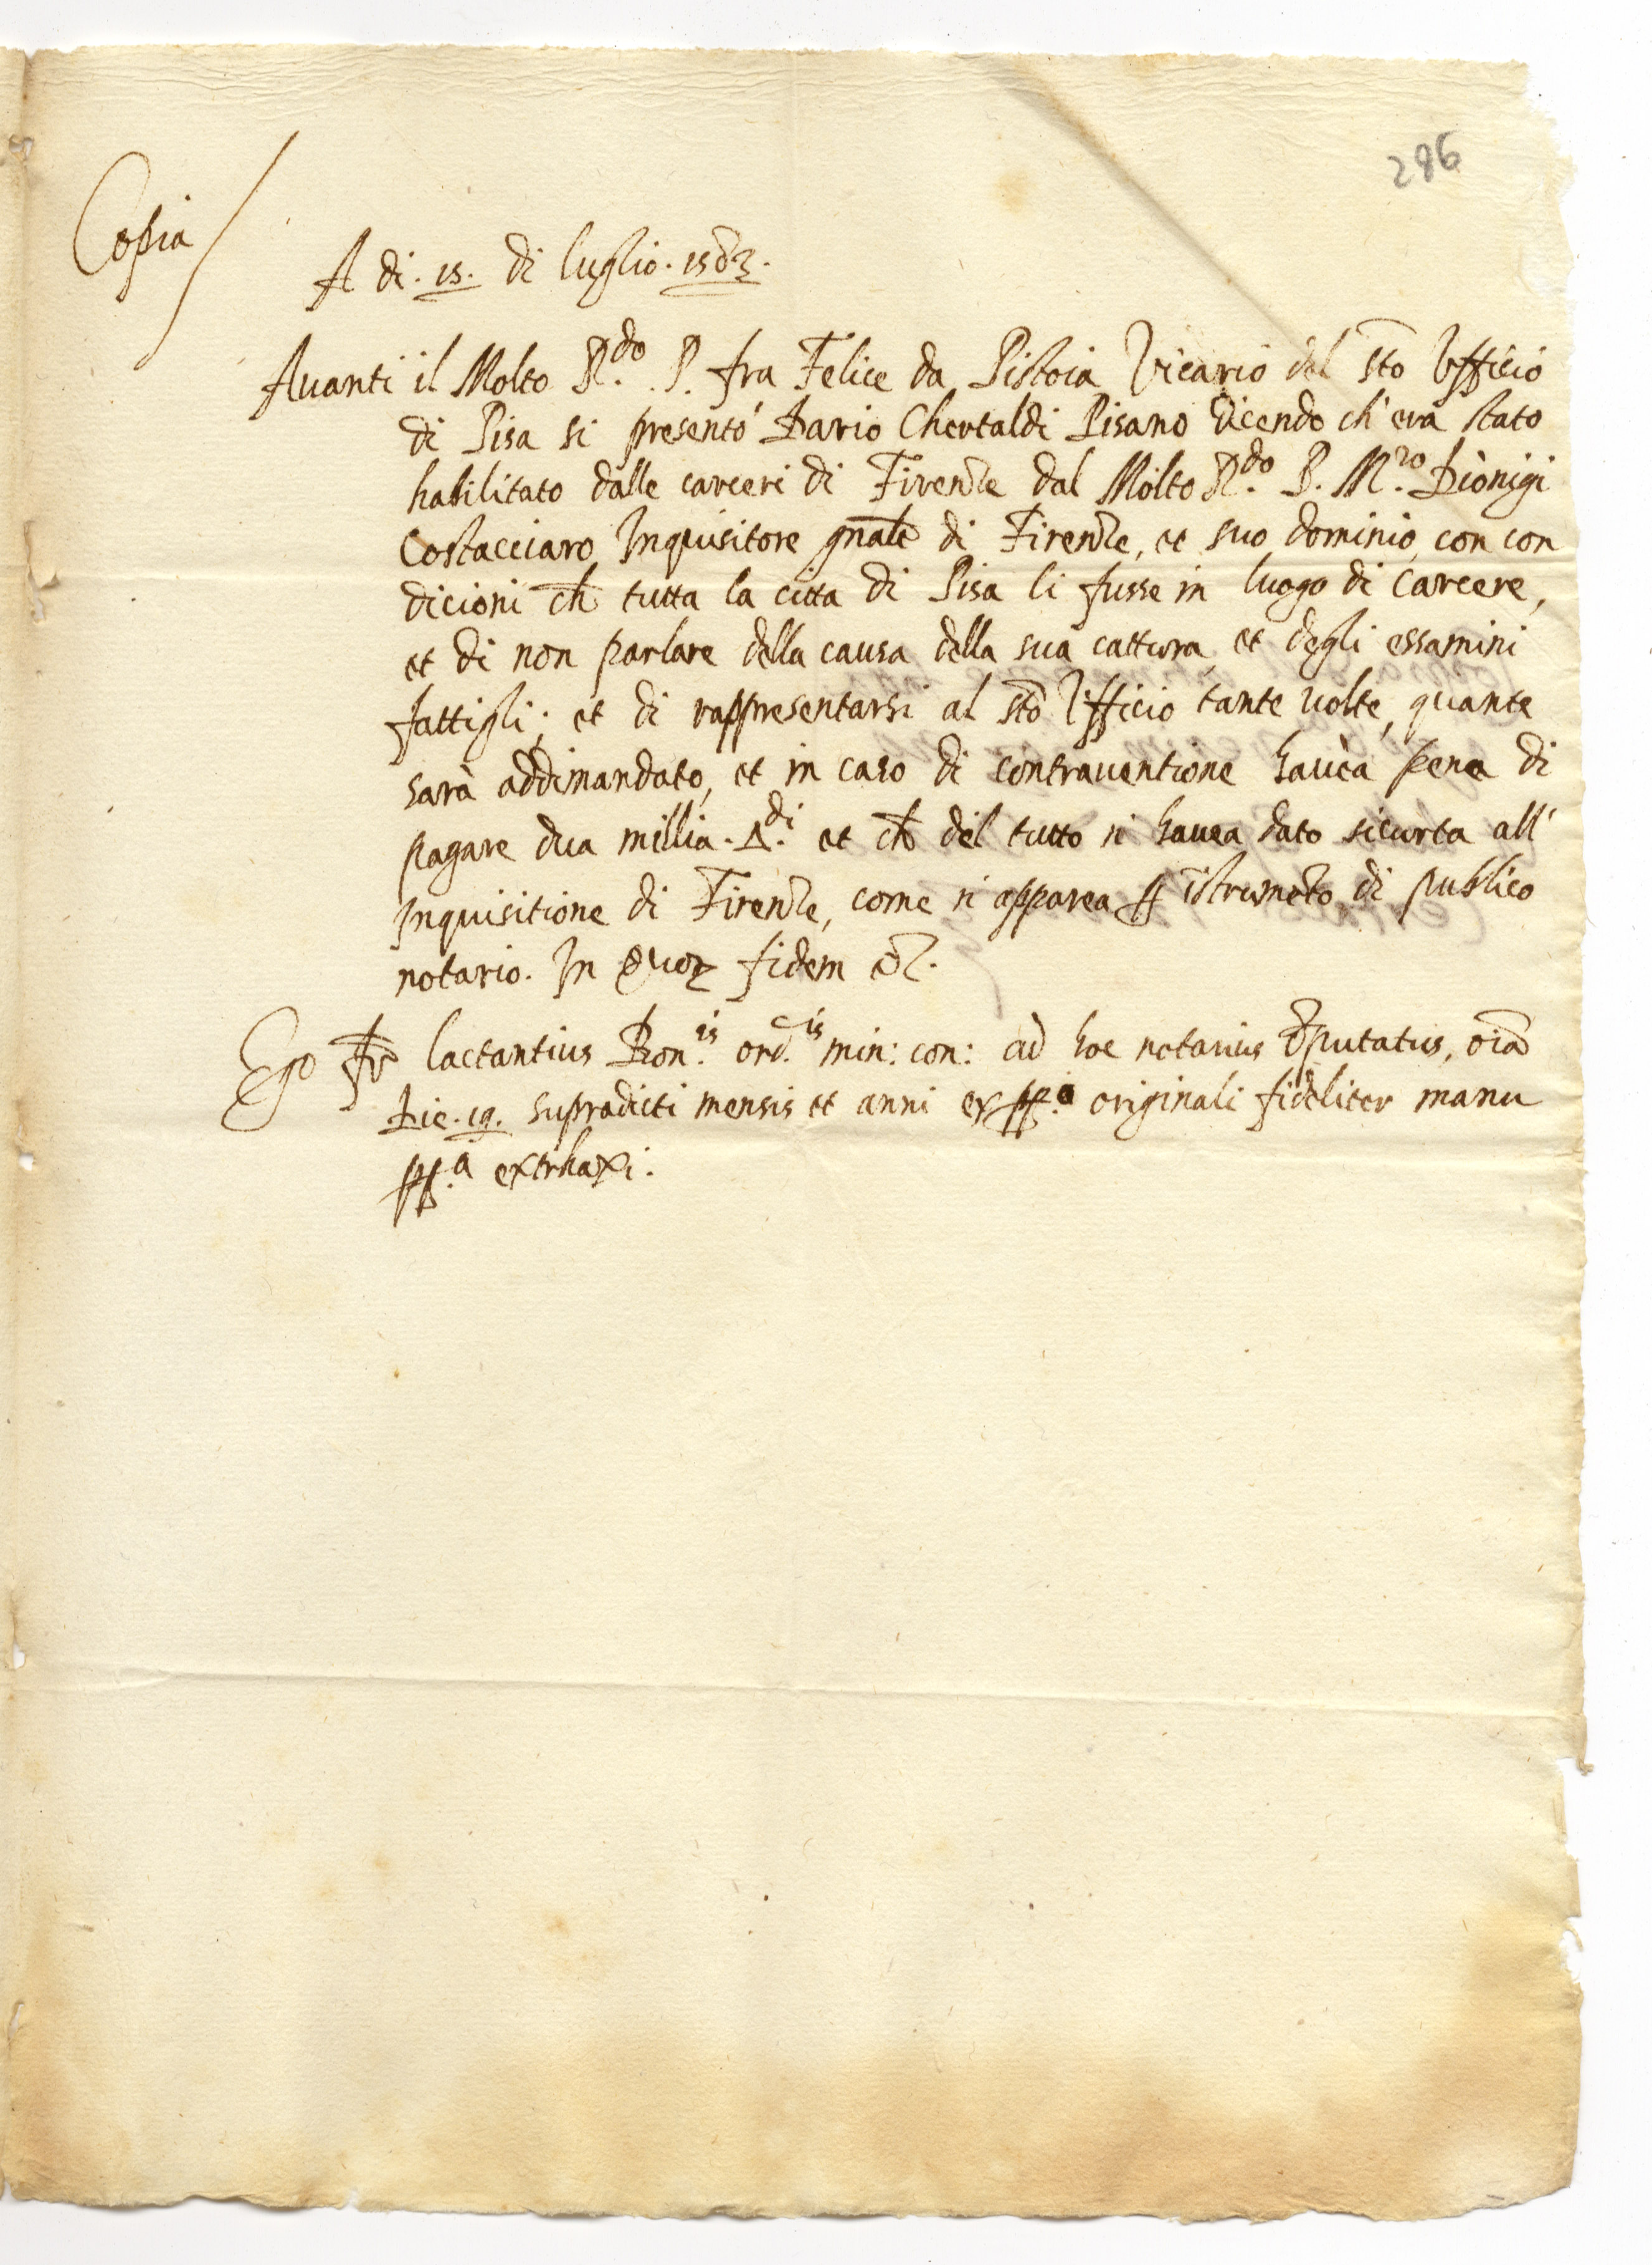 286
Copia
A di. 15. di luglio. 1583.
Auanti il Molto R.do P. fra Felice da Pistoia Vicario del sto Vfficio
di Pisa si presentò Dario Chertaldi Pisano dicendo ch'era stato
habilitato dalle carceri di Firenze dal Molto R.do P. M.ro Dionigi
Costacciaro Inquisitore gnale di Firenze, et suo dominio con con
dicioni ch tutta la citta di Pisa li fusse in luogo di carcere,
et di non parlare della causa della sua cattura et degli essamini
fattigli; et di rappresentarsi al sto Vfficio tante uolte, quante
sarà addimandato, et in caso di contrauentione hauea pena di
pagare dua millia. Δ.di et ch del tutto ni hauea dato sicurta all'
Inquisitione di Firenze, come ni apparea p istrumeto di publico
notario. In quor fidem &c.
Ego fr lactantius Bon.is ord.is min: con: ad hoc notarius deputatus, oia
Die. 19. supradicti mensis et anni ex pp.o originali fideliter manu
pp.a extrhaxi.